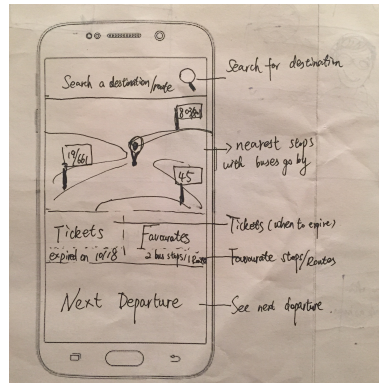 Search a destination/route
Search for destination
19/661
45
nearest stops
with buses go by
Tickets
expired on 10/18
Favourates
2 bus stops/1 Route
Tickets (when to expire)
Favourate stops/Routes
Next Departure
See next departure